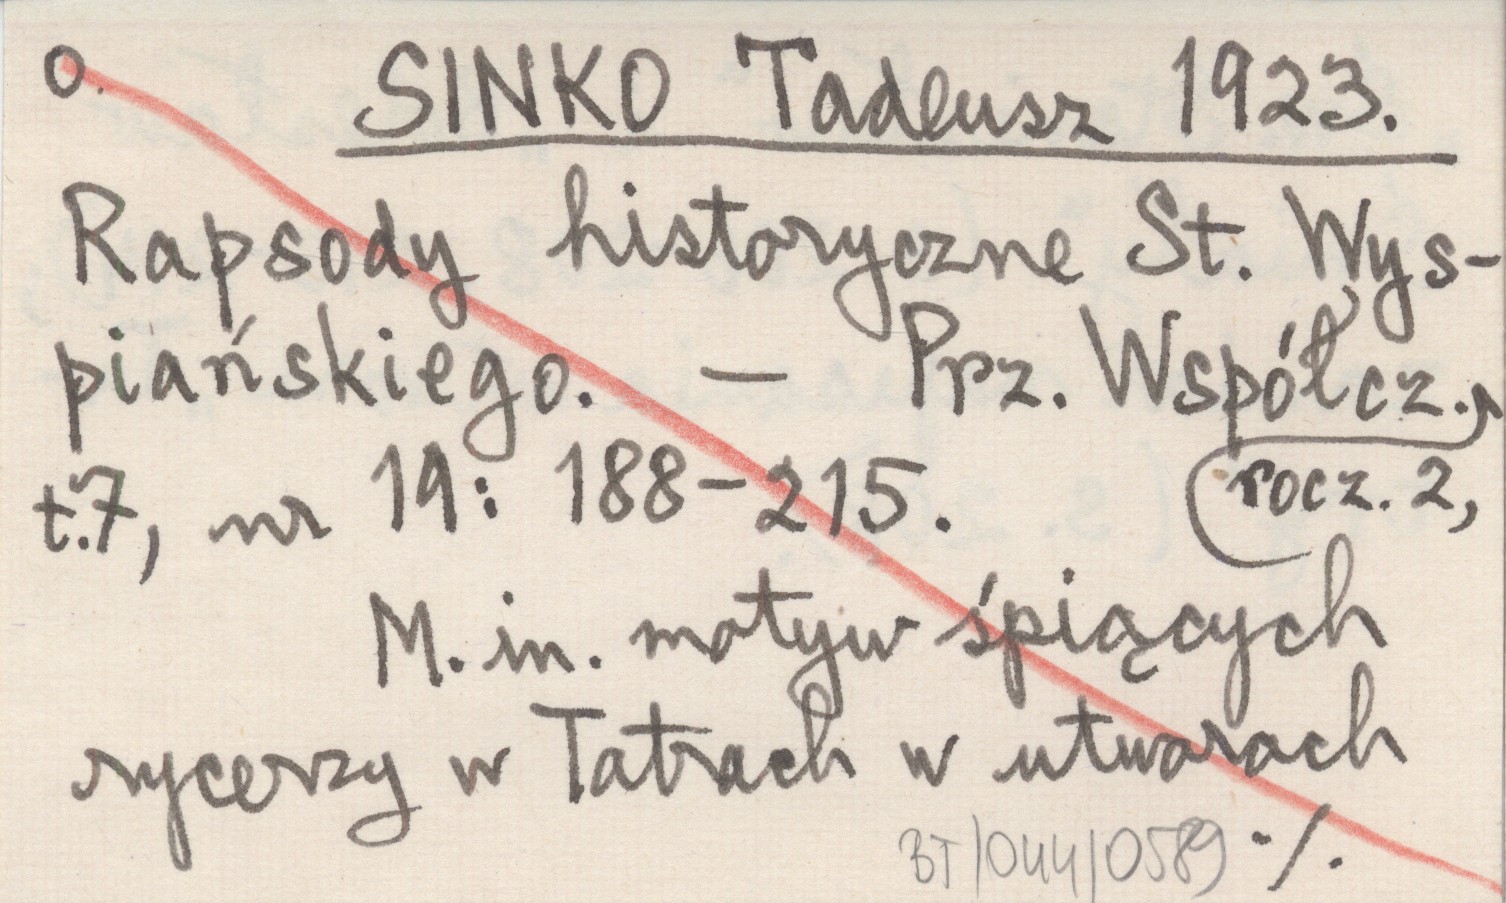 o. SINKO Tadeusz 1923.
Rapsody historyczne St. Wys-
piańskiego. — Prz. Współcz.,
rocz. 2,
t.7, nr 19: 188-215.
M. in. motyw śpiących
rycerzy w Tatrach w utworach
BT/044/0589 ./.